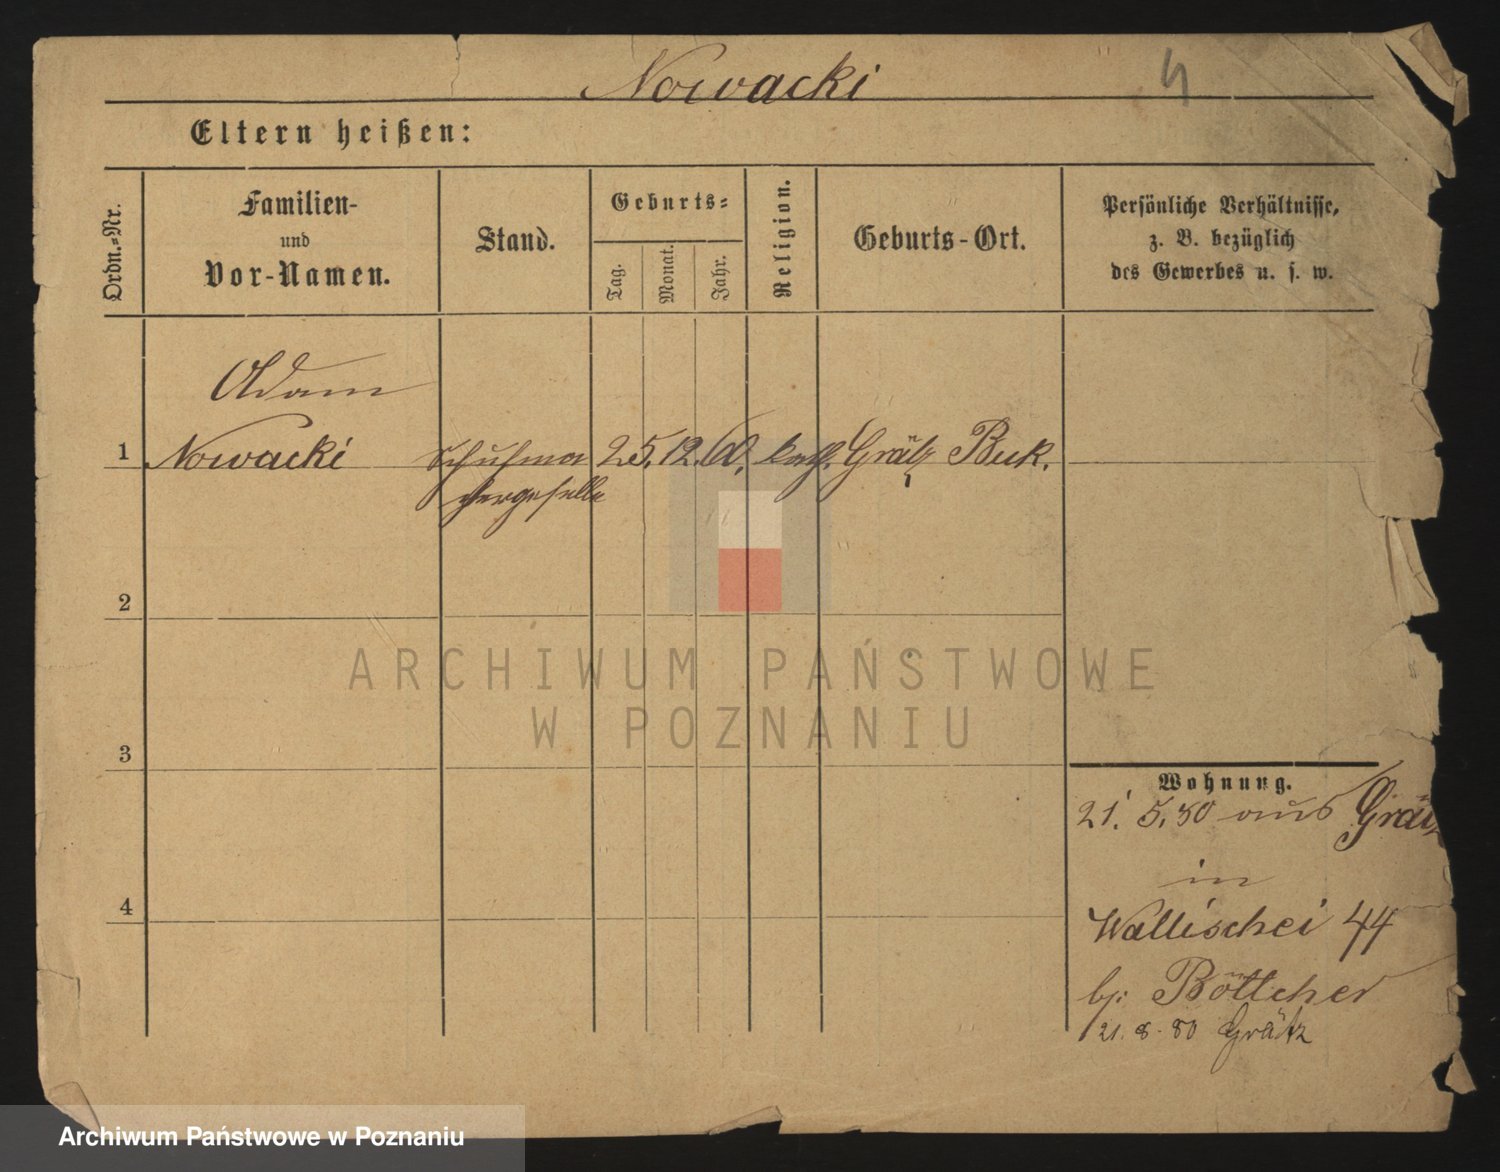 Nowacki 4
Eltern heißen:
Ordn.-Nr.
Familien-
und
Vor-Namen.
Stand.
Geburts-
Tag.
Monat.
Jahr.
Religion.
Geburts-Ort.
Persönliche Verhältnisse,
z. B. bezüglich
des Gewerbes u. s. w.
Adam
1 Nowacki Schuhma 25. 12. 60. kath. Grätz Buk.
chergeselle
2
ARCHIWUM PAŃSTWOWE
W POZNANIU
3
Wohnung.
21. 5. 80 aus Grätz
in
4
Wallischei 44
b. Böttcher
21. 8. 80 Grätz
Archiwum Państwowe w Poznaniu